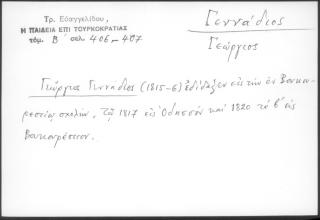 Τρ. Εὐαγγελίδου,
Η ΠΑΙΔΕΙΑ ΕΠΙ ΤΟΥΡΚΟΚΡΑΤΙΑΣ
τόμ. Β' σελ. 406-407
Γεννάδιος
Γεώργιος
Γεώργιος Γεννάδιος (1815-6) ἐδίδαξεν εἰς τὴν ἐν Βουκου-
ρεστίῳ σχολήν, τῷ 1817 εἰς Ὀδησσὸν καὶ 1820 τὸ β' εἰς
Βουκουρέστιον.